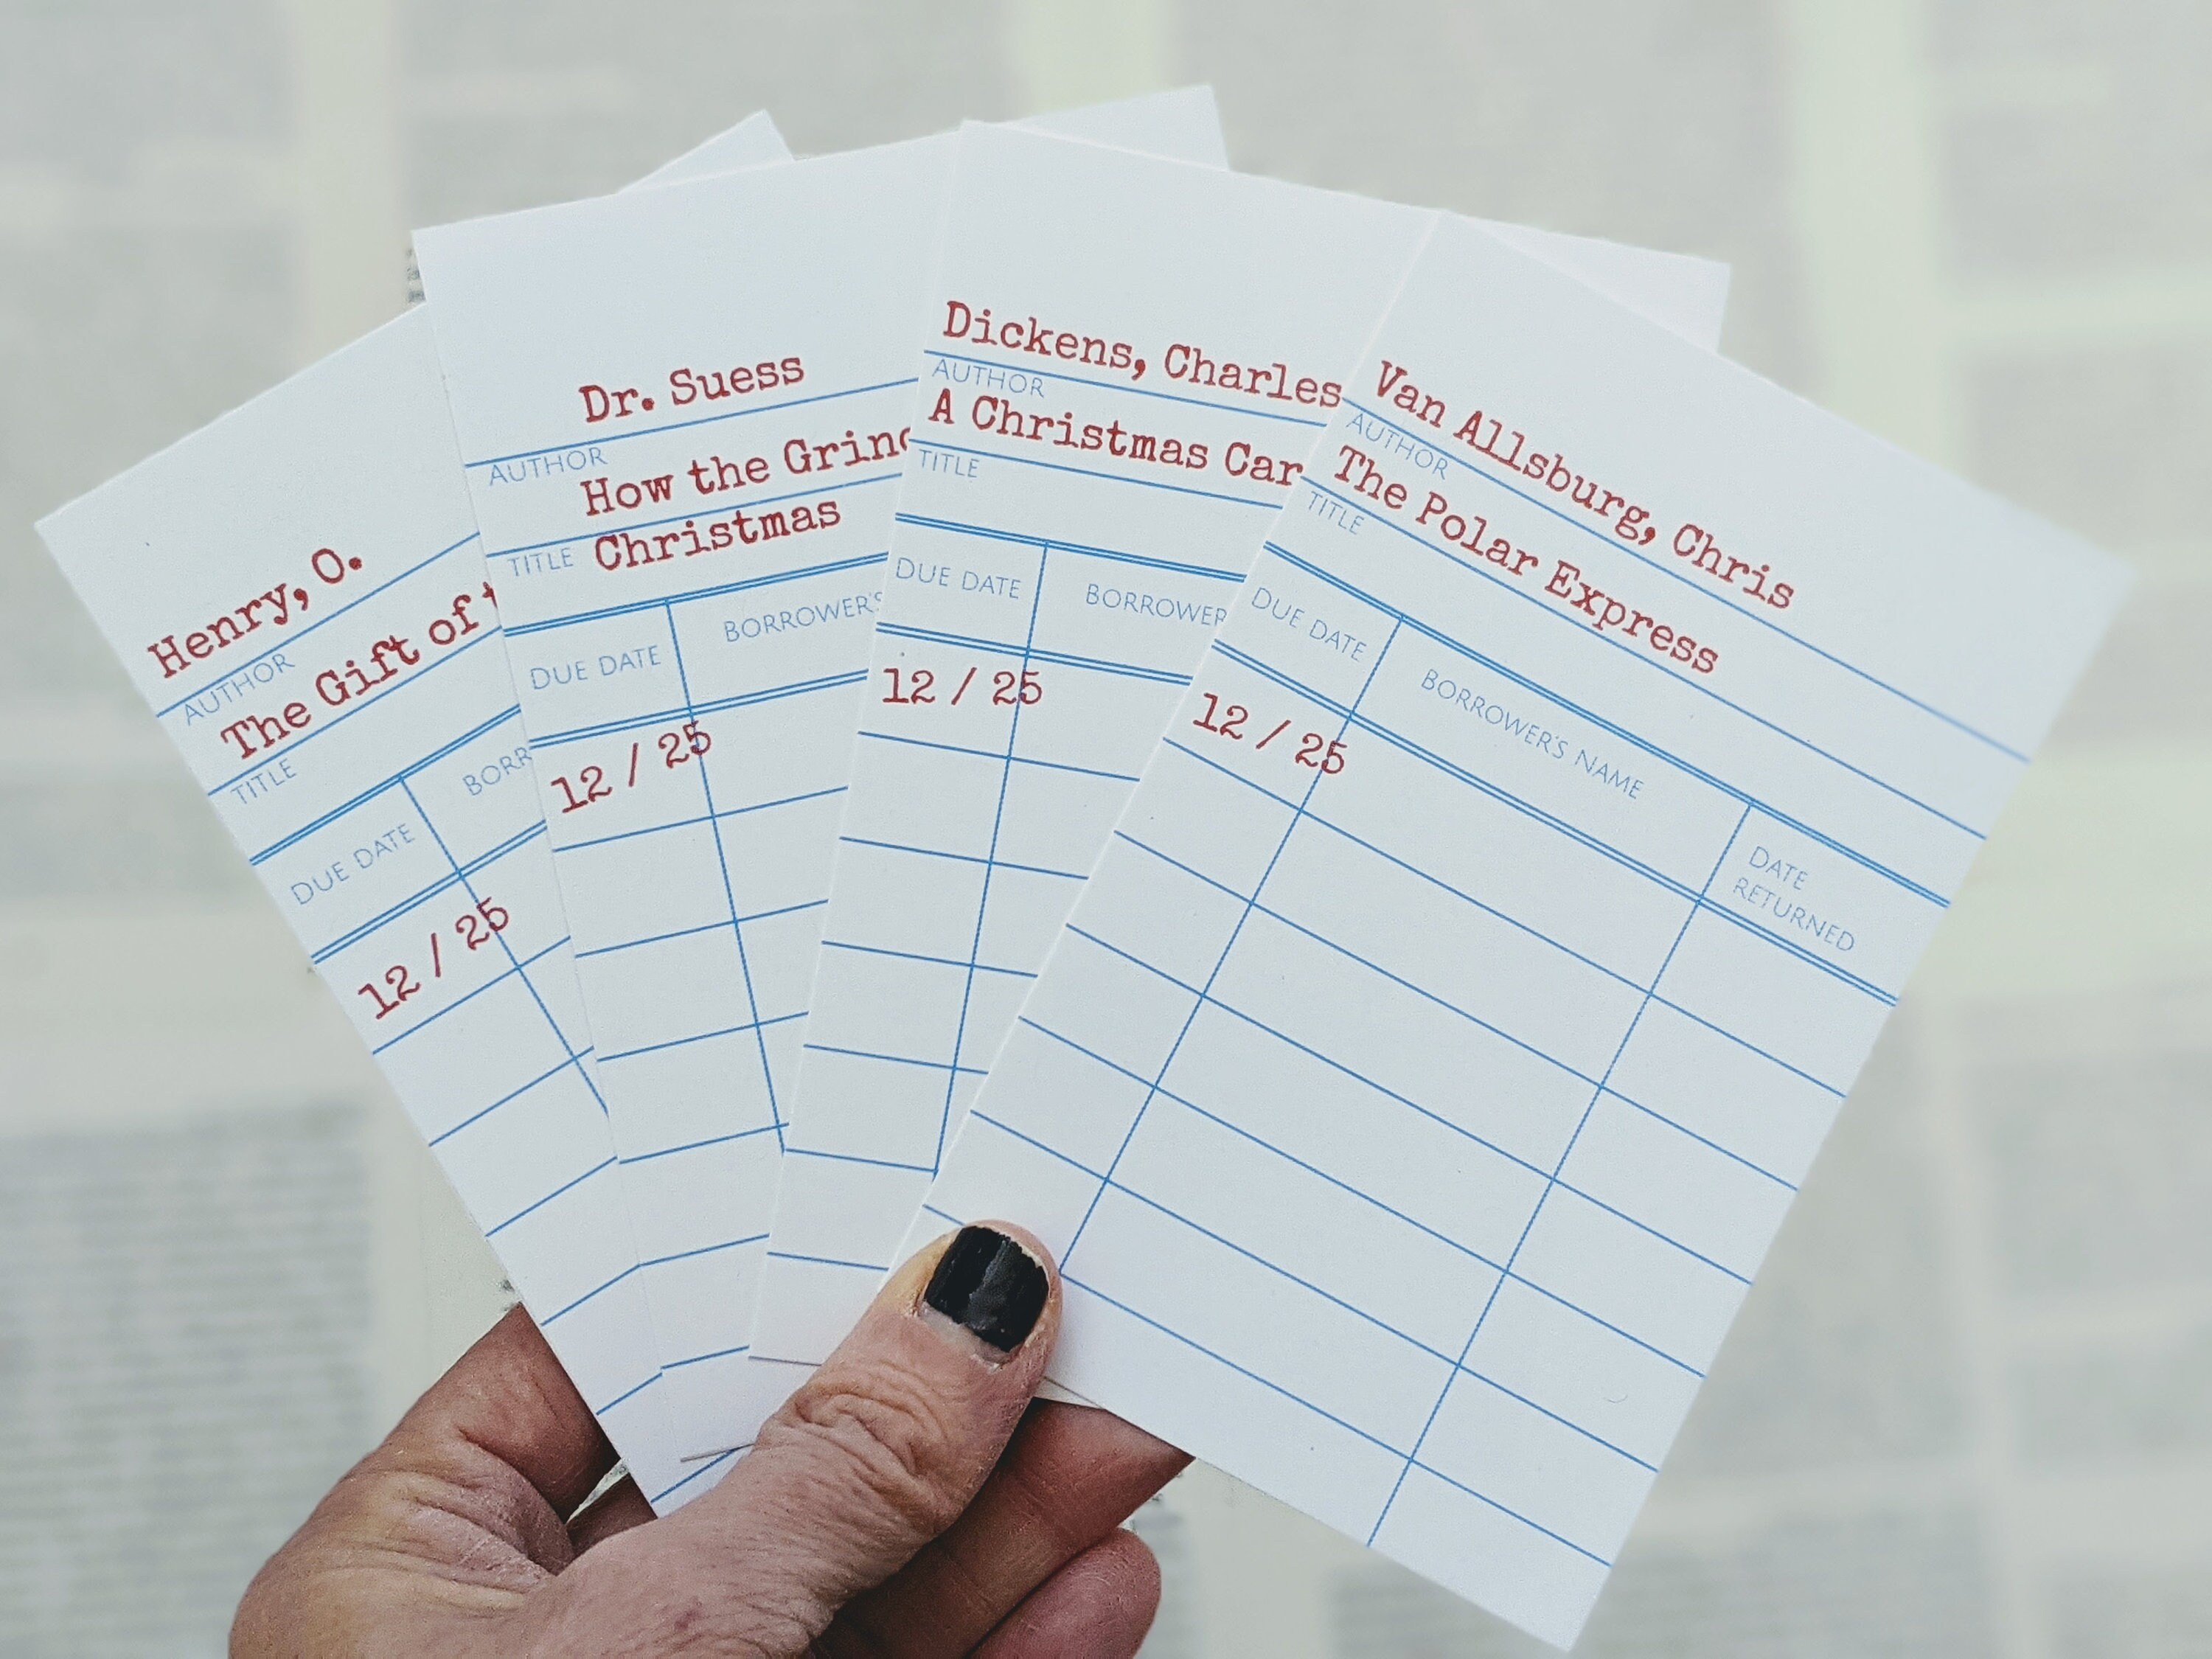 Henry, O.
AUTHOR
The Gift of
TITLE
DUE DATE BORR
12 / 25
Dr. Suess
AUTHOR
How the Grinc
TITLE Christmas
DUE DATE BORROWER'S
12 / 25
Dickens, Charles
AUTHOR
A Christmas Car
TITLE
DUE DATE BORROWER
12 / 25
Van Allsburg, Chris
AUTHOR
The Polar Express
TITLE
DUE DATE BORROWER'S NAME DATE
RETURNED
12 / 25